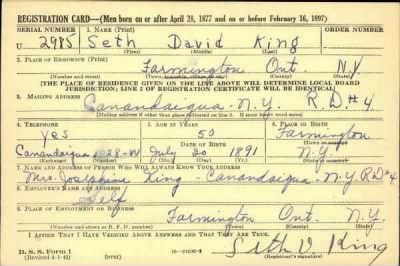 REGISTRATION CARD—(Men born on or after April 28, 1877 and on or before February 16, 1897)
SERIAL NUMBER 1. NAME (Print) ORDER NUMBER
U 2985 Seth David King
(First) (Middle) (Last)
2. PLACE OF RESIDENCE (Print)
Farmington Ont. N.Y.
(Number and street) (Town, township, village, or city) (County) (State)
[THE PLACE OF RESIDENCE GIVEN ON THE LINE ABOVE WILL DETERMINE LOCAL BOARD
JURISDICTION; LINE 2 OF REGISTRATION CERTIFICATE WILL BE IDENTICAL]
3. MAILING ADDRESS
Canandaigua - N.Y. R.D.#4
[Mailing address if other than place indicated on line 2. If same insert word same]
4. TELEPHONE 5. AGE IN YEARS 6. PLACE OF BIRTH
Yes 50 Farmington
DATE OF BIRTH (Town or county)
Canandaigua July 20 1891 N.Y.
(Exchange) (Number) (Mo.) (Day) (Yr.) (State or country)
7. NAME AND ADDRESS OF PERSON WHO WILL ALWAYS KNOW YOUR ADDRESS
Mrs. Josephine King - Canandaigua - N.Y. R.D.#4
8. EMPLOYER'S NAME AND ADDRESS
Self
9. PLACE OF EMPLOYMENT OR BUSINESS
Farmington Ont. N.Y.
(Number and street or R. F. D. number) (Town) (County) (State)
I AFFIRM THAT I HAVE VERIFIED ABOVE ANSWERS AND THAT THEY ARE TRUE.
D. S. S. Form 1 Seth D King
(Revised 4-1-42) (over) (Registrant's signature)